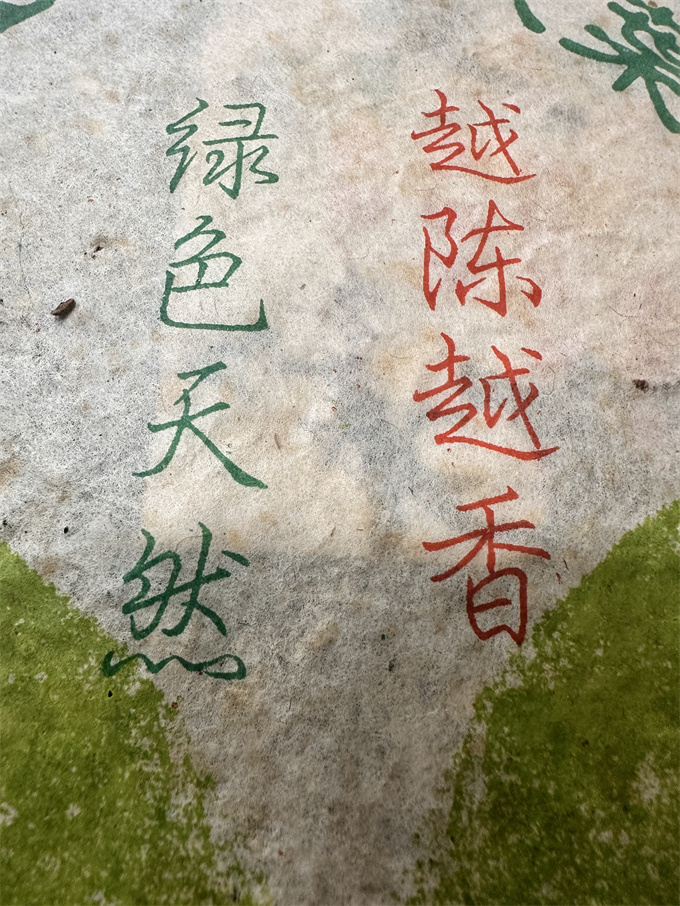 越陈越香
绿色天然